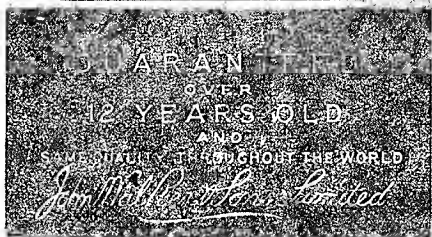 GUARANTEED
OVER
12 YEARS OLD
AND
SAME QUALITY THROUGHOUT THE WORLD
John Walker & Sons Limited